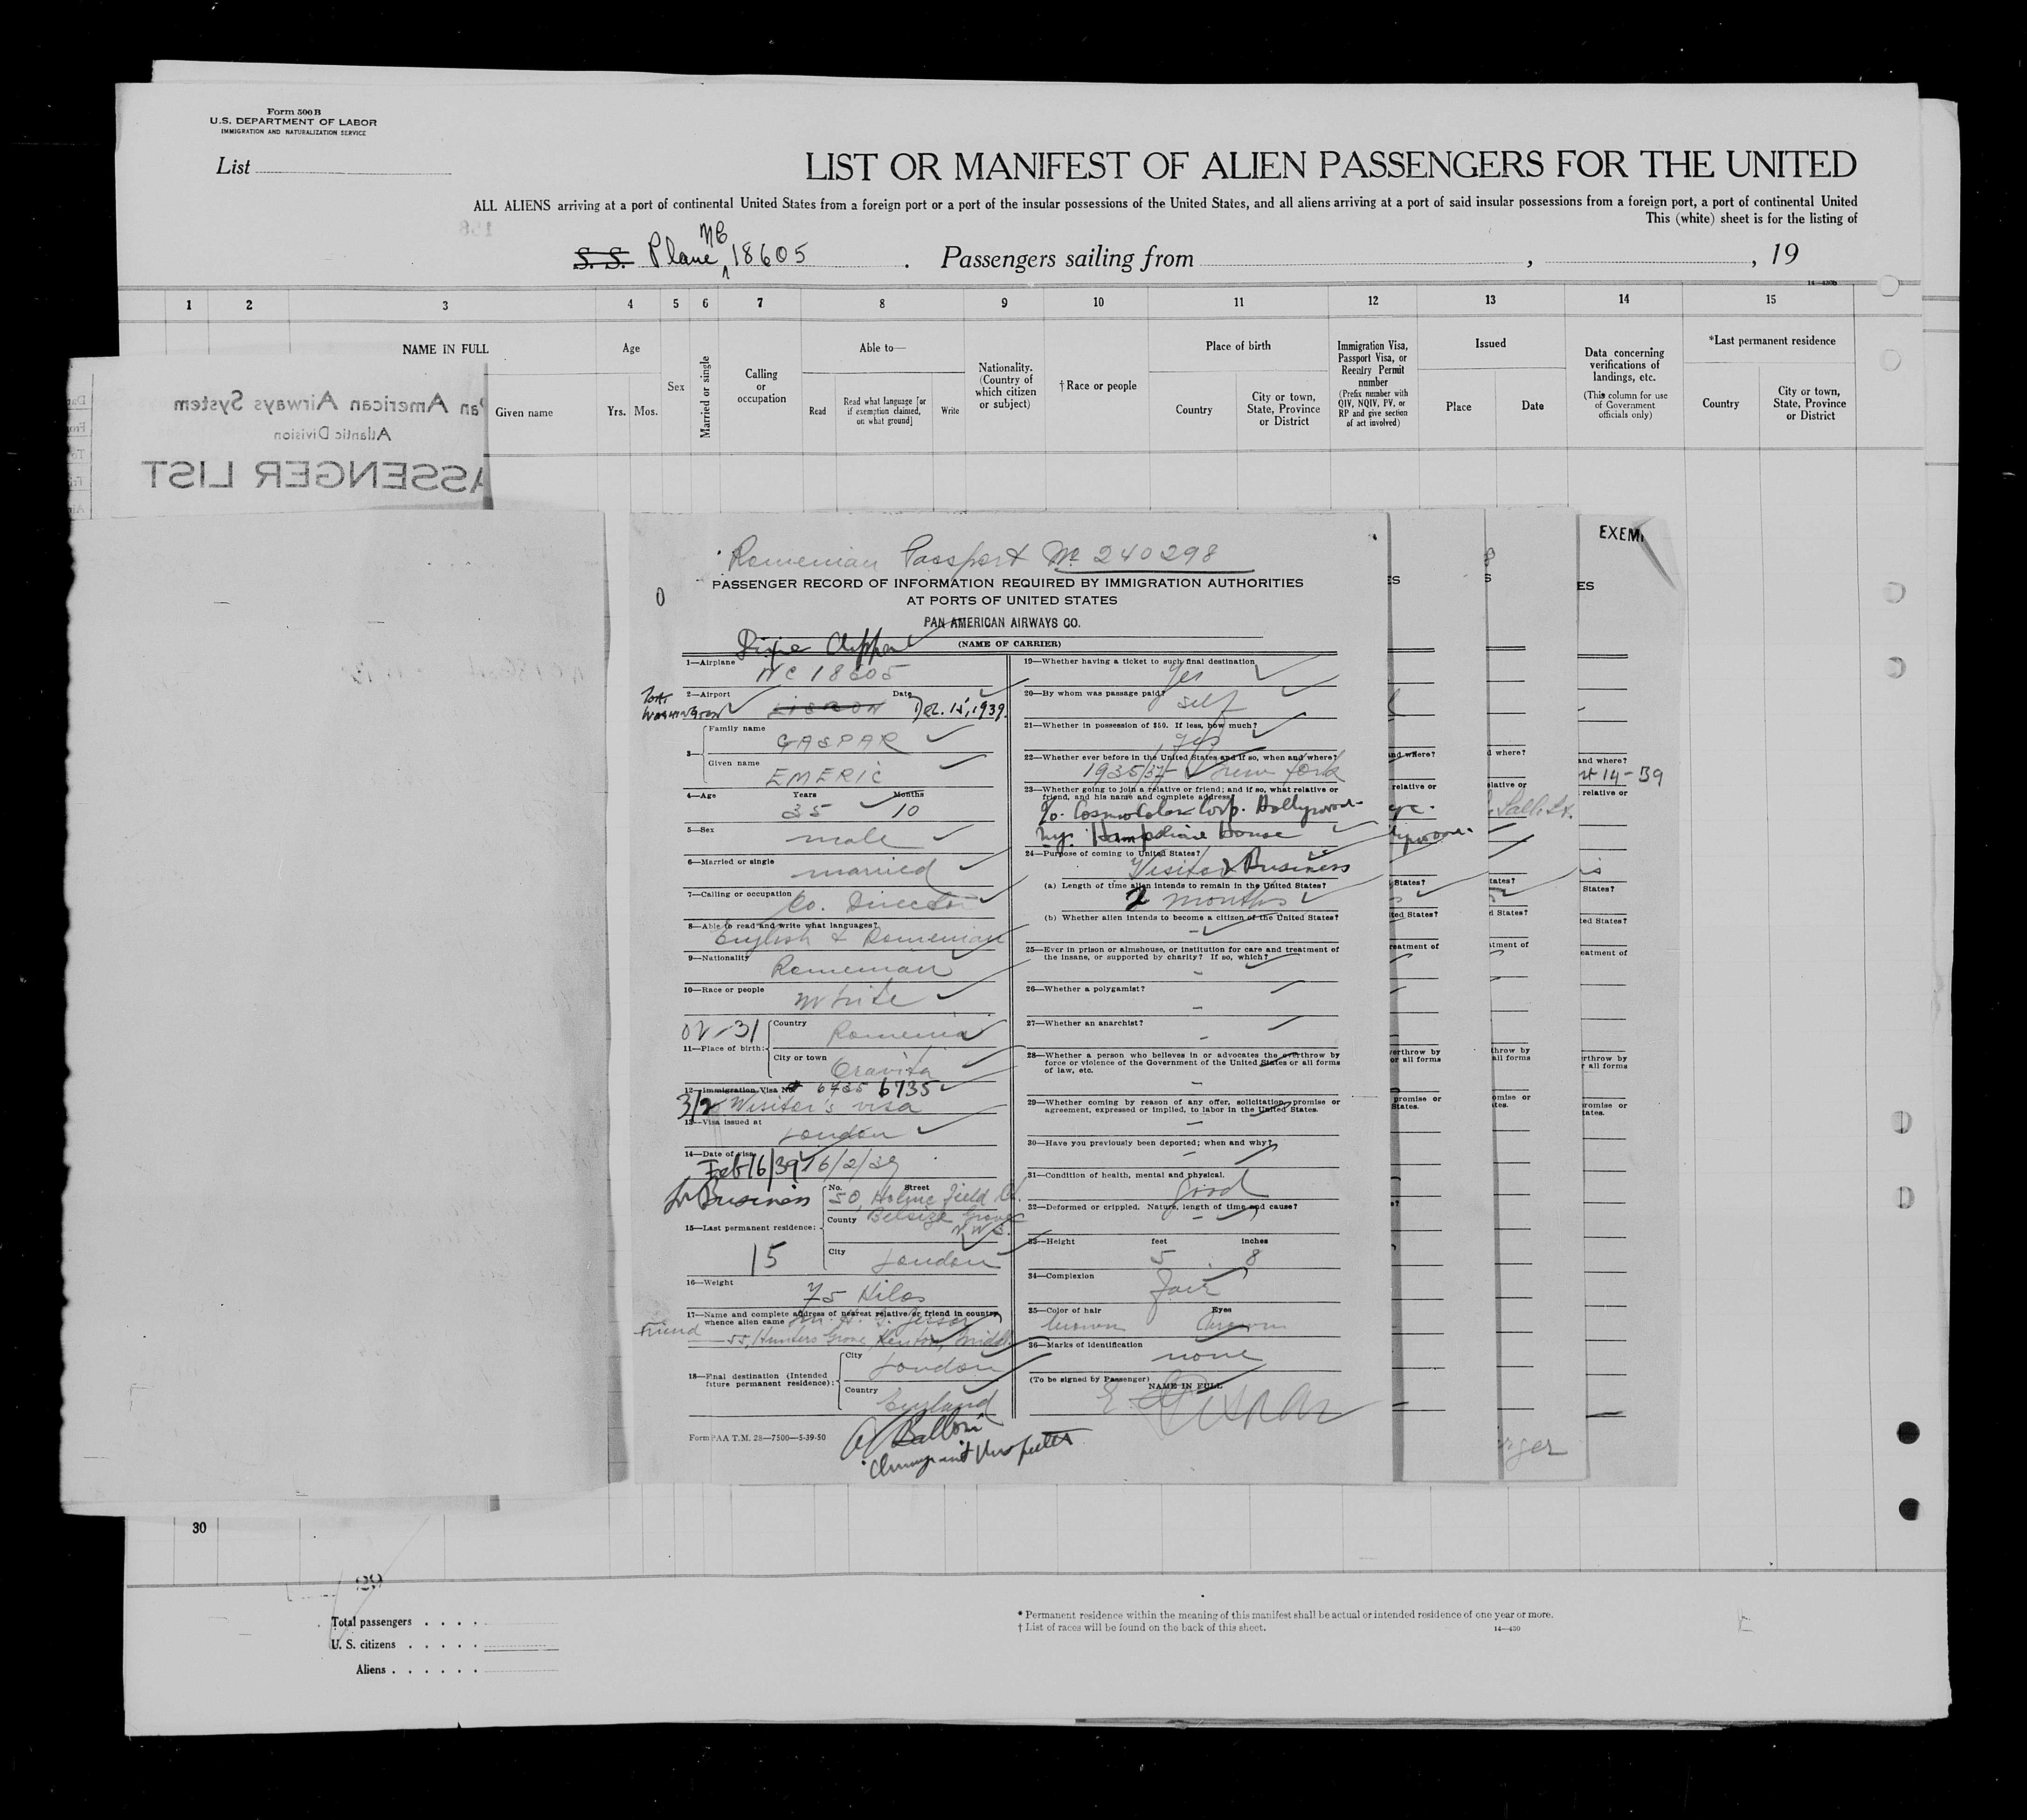 Form 500 B
U.S. DEPARTMENT OF LABOR
IMMIGRATION AND NATURALIZATION SERVICE
List
LIST OR MANIFEST OF ALIEN PASSENGERS FOR THE UNITED
ALL ALIENS arriving at a port of continental United States from a foreign port or a port of the insular possessions of the United States, and all aliens arriving at a port of said insular possessions from a foreign port, a port of continental United
This (white) sheet is for the listing of
S. S. Plane NC 18605 . Passengers sailing from , , 19
14—430b
1 2 3 4 5 6 7 8 9 10 11 12 13 14 15
NAME IN FULL
Given name
Age
Yrs. Mos.
Sex
Married or single
Calling
or
occupation
Able to—
Read
Read what language [or
if exemption claimed,
on what ground]
Write
Nationality.
(Country of
which citizen
or subject)
† Race or people
Place of birth
Country
City or town,
State, Province
or District
Immigration Visa,
Passport Visa, or
Reentry Permit
number
(Prefix number with
QIV, NQIV, PV, or
RP and give section
of act involved)
Issued
Place
Date
Data concerning
verifications of
landings, etc.
(This column for use
of Government
officials only)
*Last permanent residence
Country
City or town,
State, Province
or District
Pan American Airways System
Atlantic Division
PASSENGER LIST
Romenian Passport No 240298
PASSENGER RECORD OF INFORMATION REQUIRED BY IMMIGRATION AUTHORITIES
AT PORTS OF UNITED STATES
PAN AMERICAN AIRWAYS CO.
(NAME OF CARRIER)
Dixie Clipper
1—Airplane NC 18605
2—Airport Port Washington LISBON Date Dec. 15, 1939.
3— Family name GASPAR
Given name EMERIC
4—Age Years 35 Months 10
5—Sex male
6—Married or single married
7—Calling or occupation Co. Director
8—Able to read and write what languages?
English & Romenian
9—Nationality Romenian
10—Race or people White
11—Place of birth: Country Romenia
City or town Oravita
12—Immigration Visa No. 6735 6735
3/2 Visitor's visa
13—Visa issued at London
14—Date of visa
Feb 16/39 16/2/39
Business
15—Last permanent residence: No. Street 50, Holmefield Ct.
County Belsize Grove
N.W.3.
15 City London
16—Weight 75 Kilos
17—Name and complete address of nearest relative or friend in country
whence alien came
Friend 55, Hunters Grove, Kenton, Middx.
18—Final destination (Intended
future permanent residence): City London
Country England
Form PAA T.M. 28—7500—5-39-50
Immigrant Inspector
19—Whether having a ticket to such final destination
Yes
20—By whom was passage paid?
self
21—Whether in possession of $50. If less, how much?
yes
22—Whether ever before in the United States and if so, when and where?
1935/37 New York
23—Whether going to join a relative or friend; and if so, what relative or
friend, and his name and complete address
c/o. Cosmocolor Corp. Hollywood-
Ny. Hampshire House
24—Purpose of coming to United States?
Visitor Business
(a) Length of time alien intends to remain in the United States?
2 months
(b) Whether alien intends to become a citizen of the United States?
-
25—Ever in prison or almshouse, or institution for care and treatment of
the insane, or supported by charity? If so, which?
-
26—Whether a polygamist?
-
27—Whether an anarchist?
-
28—Whether a person who believes in or advocates the overthrow by
force or violence of the Government of the United States or all forms
of law, etc.
-
29—Whether coming by reason of any offer, solicitation, promise or
agreement, expressed or implied, to labor in the United States.
-
30—Have you previously been deported; when and why?
-
31—Condition of health, mental and physical.
good
32—Deformed or crippled. Nature, length of time and cause?
-
33—Height feet 5 inches 8
34—Complexion fair
35—Color of hair brown Eyes brown
36—Marks of identification
none
(To be signed by Passenger)
NAME IN FULL
E. Gaspar
EXEM
30
Total passengers . . . .
U. S. citizens . . . . .
Aliens . . . . . .
* Permanent residence within the meaning of this manifest shall be actual or intended residence of one year or more.
† List of races will be found on the back of this sheet.
14—430